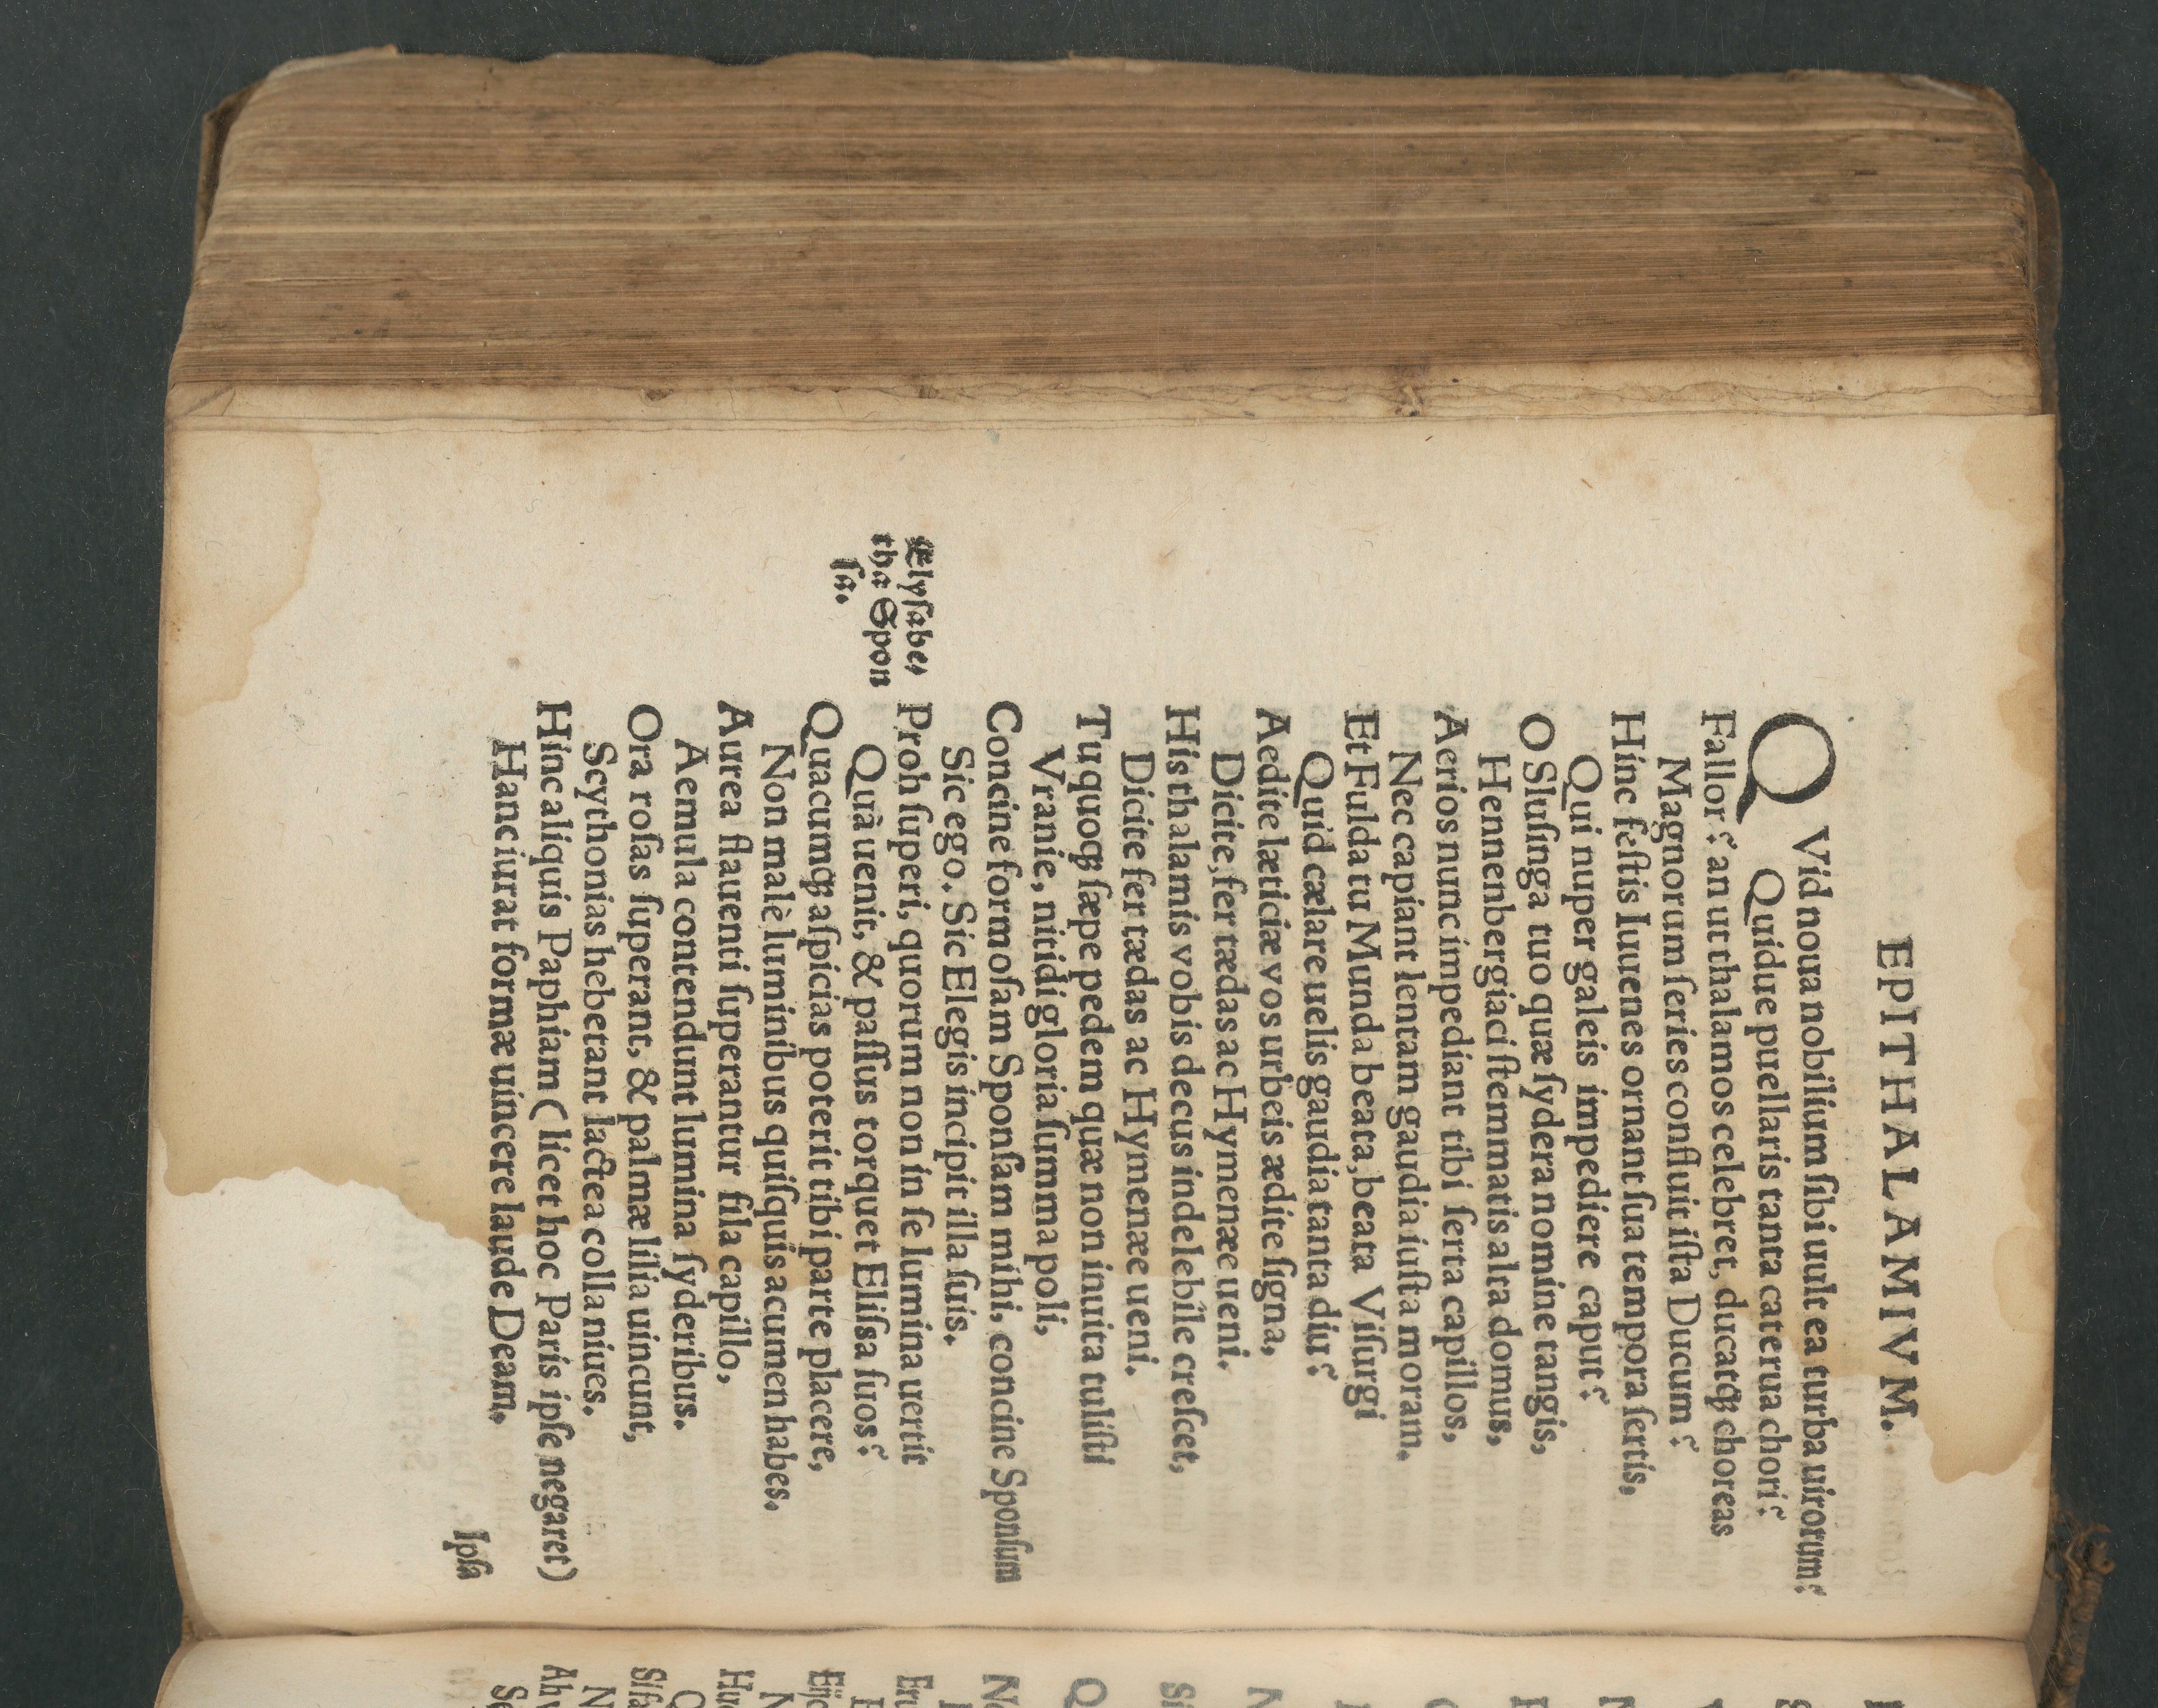 EPITHALAMIVM.
QVid noua nobilium ſibi uult ea turba uirorum?
Quidue puellaris tanta caterua chori?
Fallor? an ut thalamos celebret, ducatqꝫ choreas
Magnorum ſeries confluit iſta Ducum?
Hinc feſtis Iuuenes ornant ſua tempora ſertis,
Qui nuper galeis impediere caput?
O Sluſinga tuo quæ ſydera nomine tangis,
Hennenbergiaci ſtemmatis alta domus,
Aerios nunc impediant tibi ſerta capillos,
Nec capiant lentam gaudia iuſta moram.
Et Fulda tu Munda beata, beata Viſurgi
Quid cælare uelis gaudia tanta diu?
Aedite læticiæ vos urbeis ædite ſigna,
Dicite, fer tædas ac Hymenæe ueni.
His thalamis vobis decus indelebile creſcet,
Dicite fer tædas ac Hymenæe ueni.
Tu quoqꝫ ſæpe pedem quæ non inuita tuliſti
Vranie, nitidi gloria ſumma poli,
Concine formoſam Sponſam mihi, concine Sponſum
Sic ego. Sic Elegis incipit illa ſuis.
Elyſabe⸗
tha Spon
ſa.
Proh ſuperi, quorum non in ſe lumina uertit
Quà uenit, & paſſus torquet Eliſsa ſuos?
Quacumqꝫ aſpicias poterit tibi parte placere,
Non malè luminibus quiſquis acumen habes.
Aurea flauenti ſuperantur fila capillo,
Aemula contendunt lumina ſyderibus.
Ora roſas ſuperant, & palmæ lilia uincunt,
Scythonias hebetant lactea colla niues.
Hinc aliquis Paphiam (licet hoc Paris ipſe negaret)
Hanc iurat formæ uincere laude Deam.
Ipſa